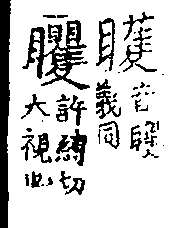 矆音䂄
義同
䂄許縛切
大視也